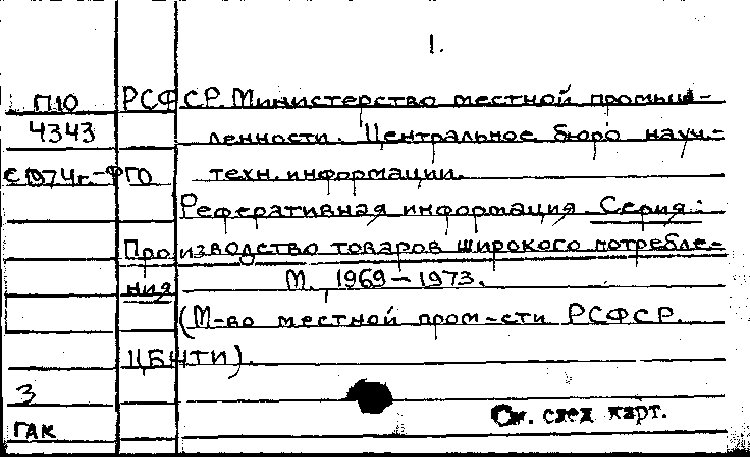 1.
П10 РСФСР. Министерство местной промыш-
4343 ленности. Центральное бюро науч.-
с 1974г.-ФГО техн. информации.
Реферативная информация. Серия:
Производство товаров широкого потребле-
ния М., 1969-1973.
(М-во местной пром-сти РСФСР.
ЦБНТИ).
3
ГАК
См. след карт.